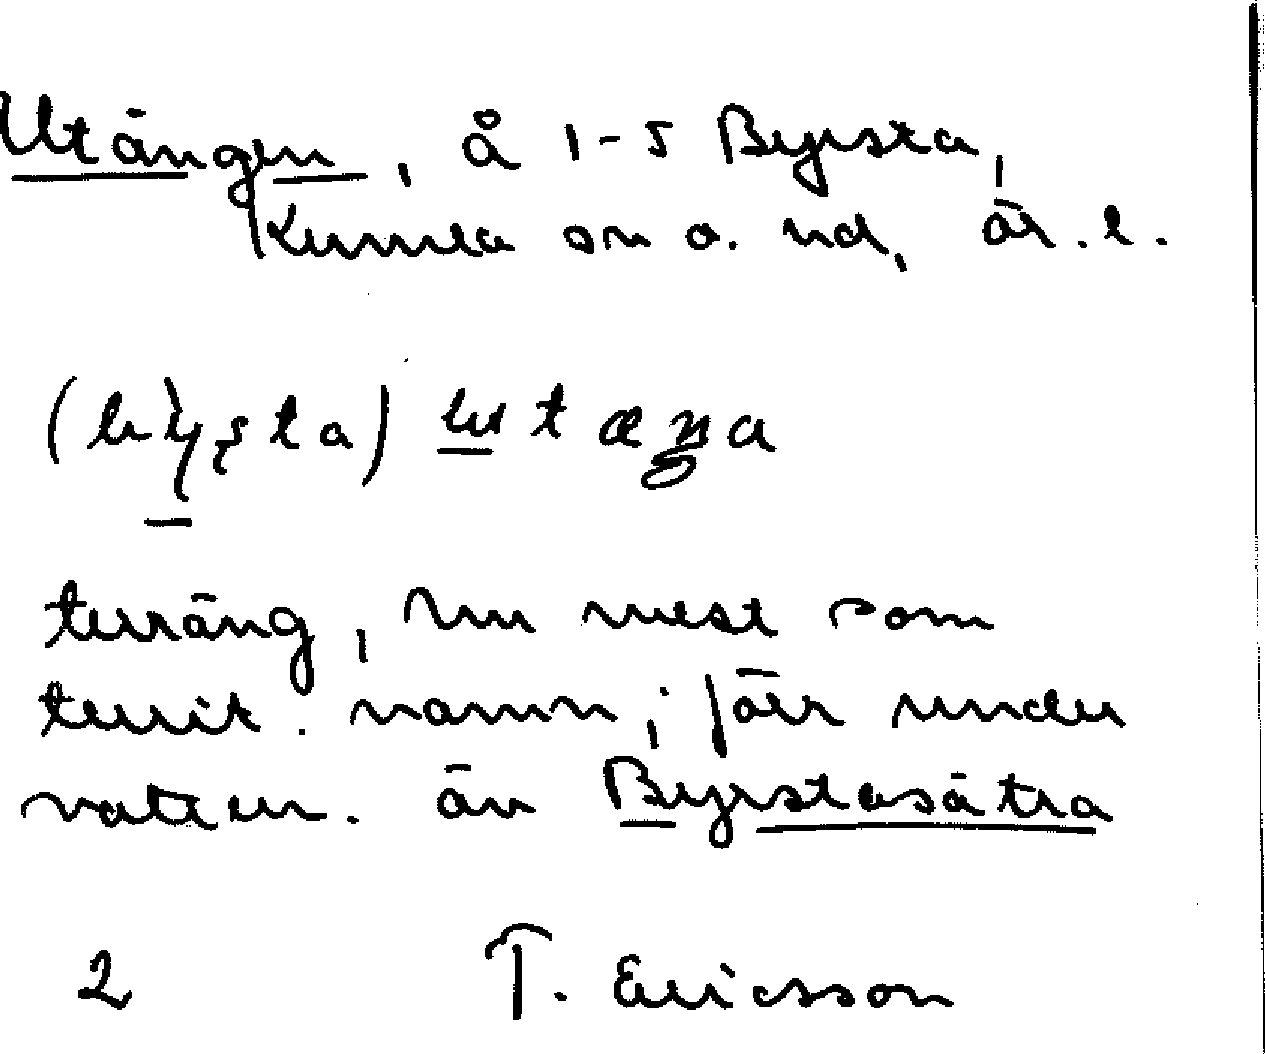 Utängen, å 1-5 Byrsta,
Kumla sn o. hd, Är. l.
terräng, nu mest som
territ. namn; jfr under
vatten. än Byrstasätra
2 T. Ericsson